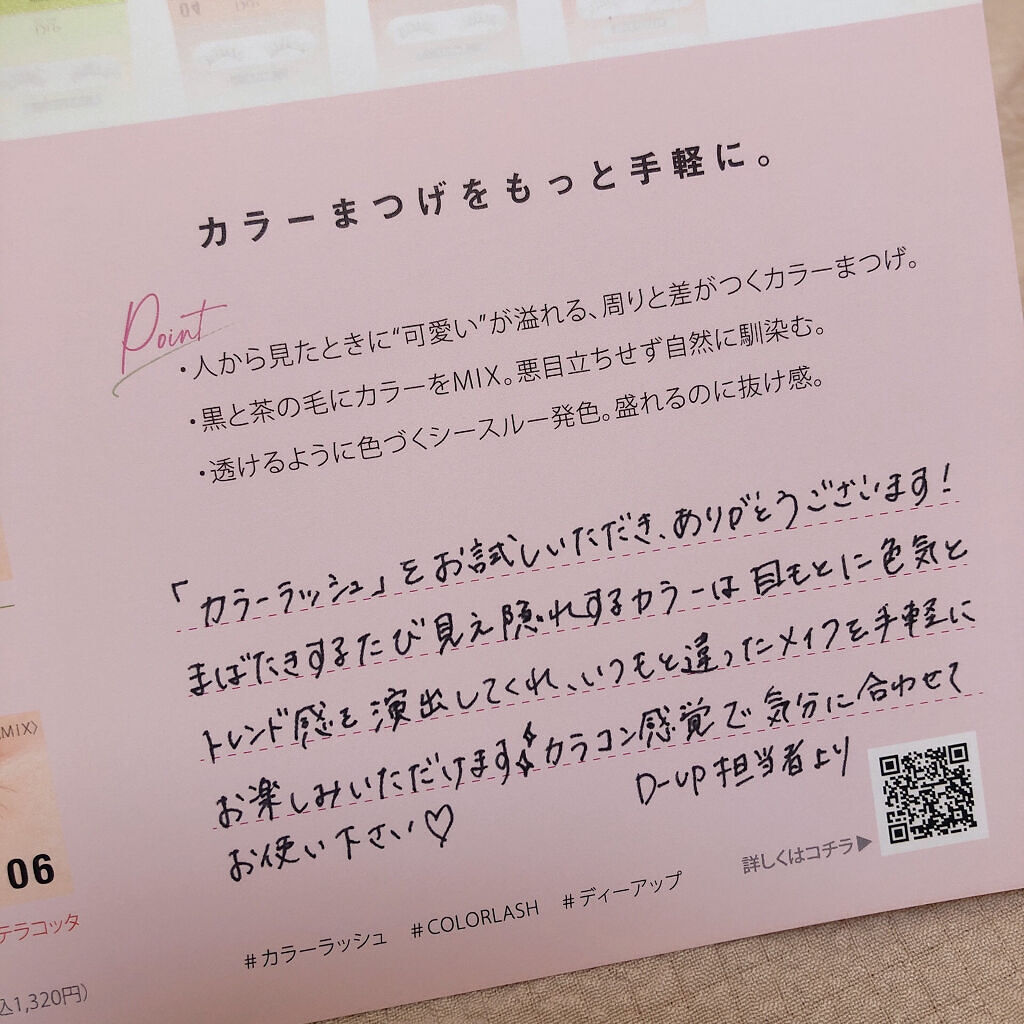 04
カラーまつげをもっと手軽に。
Point
・人から見たときに“可愛い”が溢れる、周りと差がつくカラーまつげ。
・黒と茶の毛にカラーをMIX。悪目立ちせず自然に馴染む。
・透けるように色づくシースルー発色。盛れるのに抜け感。
「カラーラッシュ」をお試しいただき、ありがとうございます!
まばたきするたび見え隠れするカラーは目もとに色気と
トレンド感を演出してくれ、いつもと違ったメイクを手軽に
お楽しみいただけます カラコン感覚で気分に合わせて
お使い下さい♡
D-UP担当者より
詳しくはコチラ▶
#カラーラッシュ #COLORLASH #ディーアップ
MIX〉
06
テラコッタ
込1,320円)